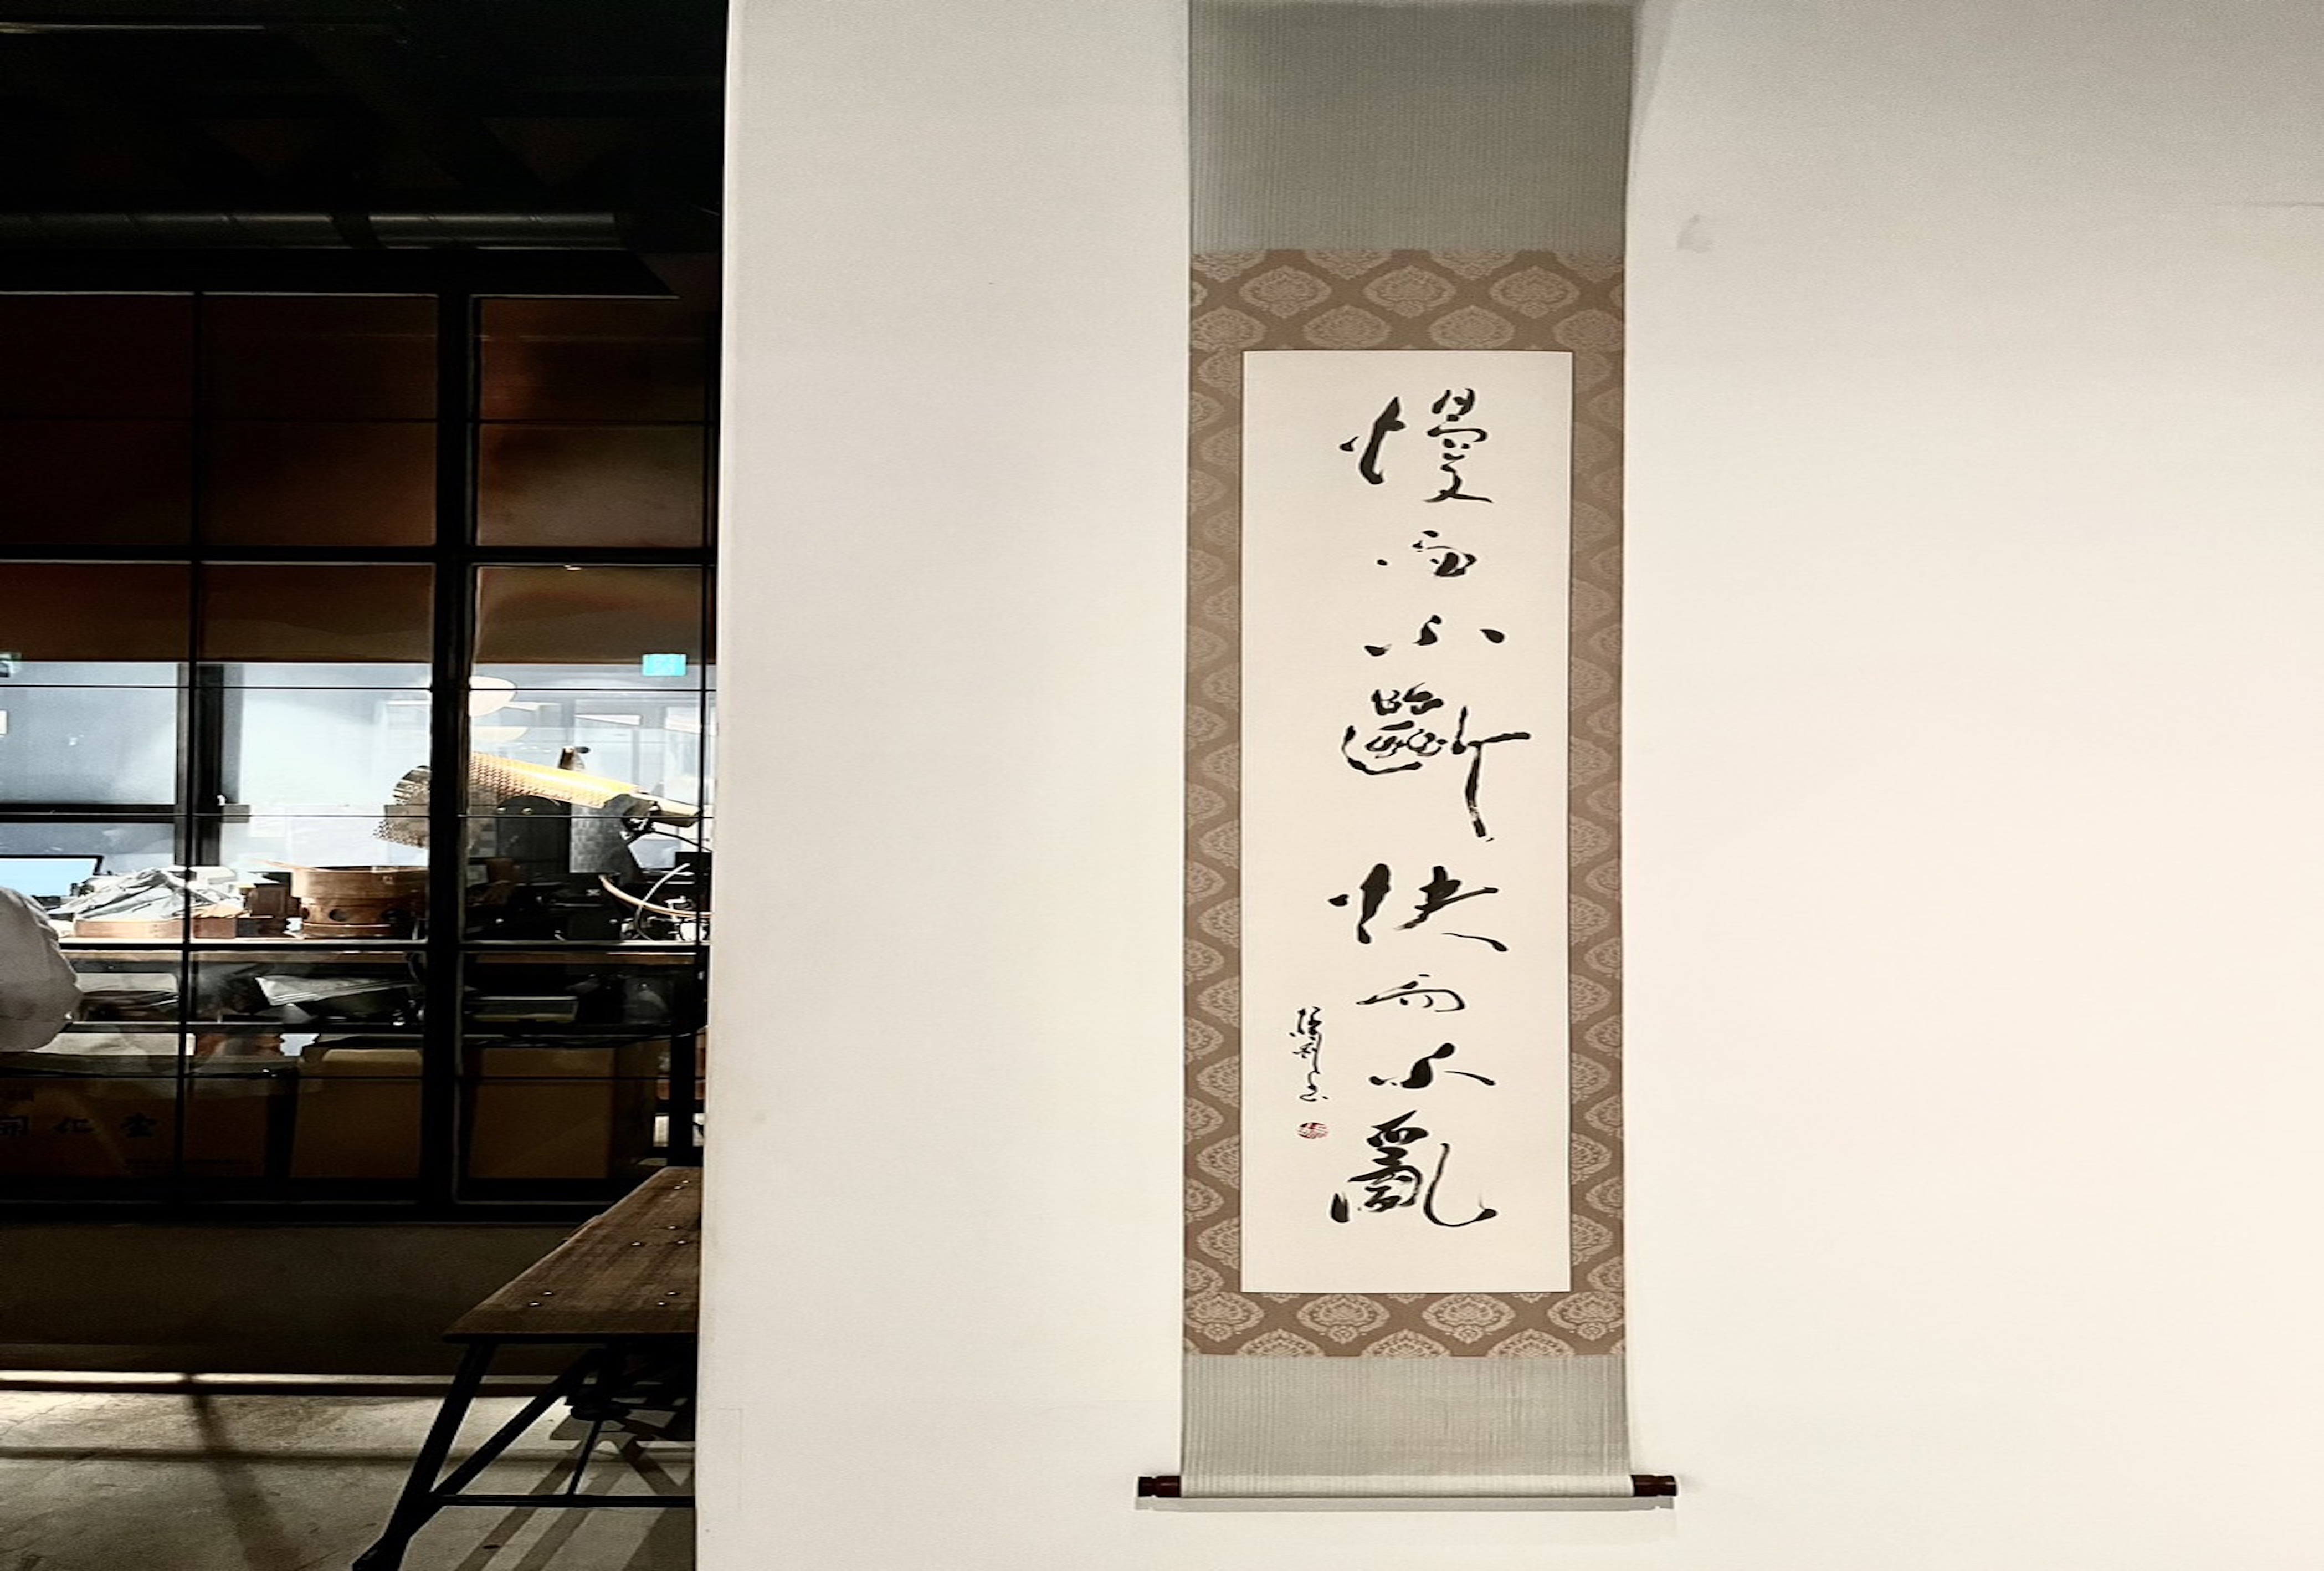 慢而不斷快而不亂
開化堂